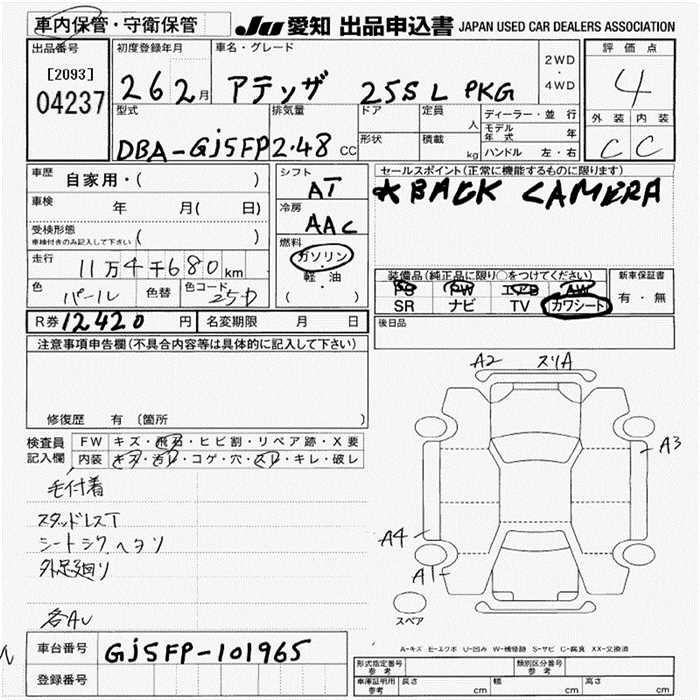 車内保管・守衛保管
JU 愛知 出品申込書 JAPAN USED CAR DEALERS ASSOCIATION
出品番号
[2093]
04237
初度登録年月
26 2月
車名・グレード
アテンザ 25S L PKG
2WD
・
4WD
評価点
4
外装 内装
C C
型式
DBA-GJ5FP
排気量
2.48 CC
ドア
形状
定員 人
積載 kg
ディーラー・並行
モデル年式 年
ハンドル 左・右
車歴 自家用・( )
車検 年 月( 日)
受検形態
車検付きのみ記入して下さい ( )
走行 11万4千680km
色 パール 色替 色コード 25D
シフト
AT
冷房
AAC
燃料
ガソリン
軽・油
( ・ )
セールスポイント(正常に機能するものに限ります)
★BACK CAMERA
装備品(純正品に限り○をつけてください)
PS PW エアB AW
SR ナビ TV カワシート
新車保証書
有・無
R券 12420 円 名変期限 月 日
後日品
注意事項申告欄(不具合内容等は具体的に記入して下さい)
修復歴 有 〔箇所 〕
検査員
記入欄
FW キズ・飛石・ヒビ割・リペア跡・X要
内装 キズ・汚レ・コゲ・穴・スレ・キレ・破レ
毛付着
スタッドレスT
シートシワ ヘタリ
外足廻り
各AU
A2 スリA
A3
A4
A1
スペア
A-キズ E-エクボ U-凹み W-補修跡 S-サビ C-腐食 XX-交換済
車台番号 GJ5FP-101965
登録番号
形式指定番号
参考
類別区分番号
参考
車庫証明用
参考
長さ cm 幅 cm 高さ cm